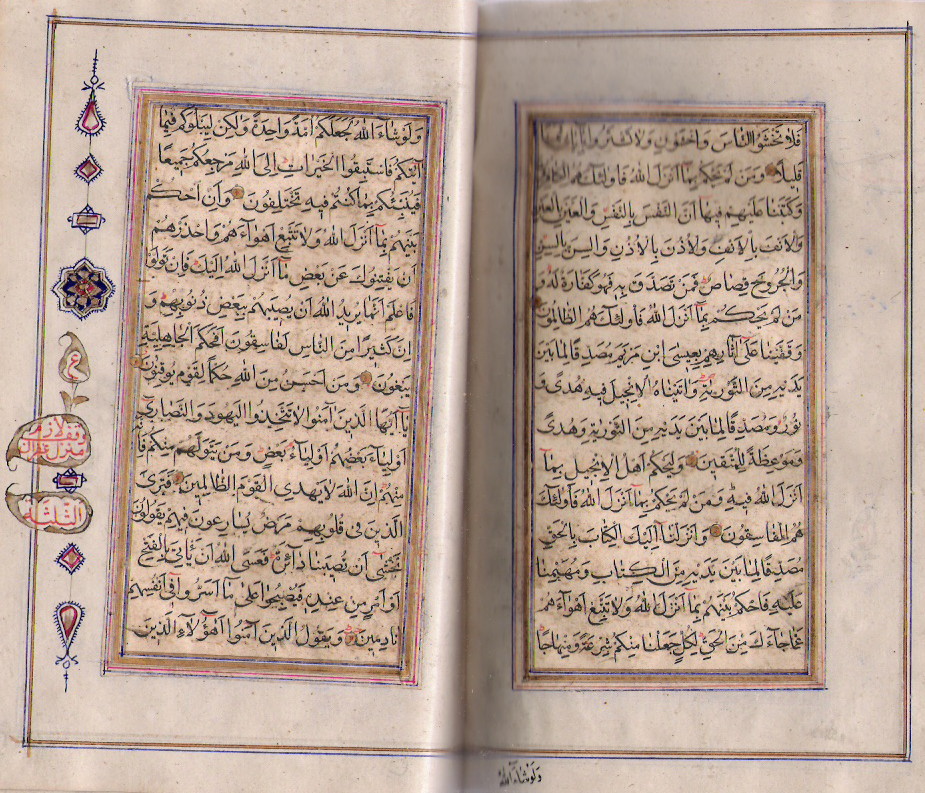 فلا تخشوا الناس واخشون ولا تشتروا باياتي ثمنا
قليلا ومن لم يحكم بما انزل الله فاولئك هم الكافرون
وكتبنا عليهم فيها ان النفس بالنفس والعين بالعين
والانف بالانف والاذن بالاذن والسن بالسن
والجروح قصاص فمن تصدق به فهو كفارة له و
من لم يحكم بما انزل الله فاولئك هم الظالمون
وقفينا على اثارهم بعيسى ابن مريم مصدقا لما بين
يديه من التورية واتيناه الانجيل فيه هدى و
نور ومصدقا لما بين يديه من التورية وهدى
وموعظة للمتقين وليحكم اهل الانجيل بما
انزل الله فيه ومن لم يحكم بما انزل الله فاولئك
هم الفاسقون وانزلنا اليك الكتاب بالحق
مصدقا لما بين يديه من الكتاب ومهيمنا
عليه فاحكم بينهم بما انزل الله ولا تتبع اهواءهم
عما جاءك من الحق لكل جعلنا منكم شرعة ومنهاجا
ولو شاء الله
ولو شاء الله لجعلكم امة واحدة ولكن ليبلوكم فيما
اتيكم فاستبقوا الخيرات الى الله مرجعكم جميعا
فينبئكم بما كنتم فيه تختلفون وان احكم
بينهم بما انزل الله ولا تتبع اهواءهم واحذرهم
ان يفتنوك عن بعض ما انزل الله اليك فان تولوا
فاعلم انما يريد الله ان يصيبهم ببعض ذنوبهم و
ان كثيرا من الناس لفاسقون افحكم الجاهلية
يبغون ومن احسن من الله حكما لقوم يوقنون
يا ايها الذين امنوا لا تتخذوا اليهود والنصارى
اولياء بعضهم اولياء بعض ومن يتولهم منكم فانه
منهم ان الله لا يهدى القوم الظالمين فترى
الذين فى قلوبهم مرض يسارعون فيهم يقولون
نخشى ان تصيبنا دائرة فعسى الله ان يأتى بالفتح
او امر من عنده فيصبحوا على ما اسروا فى انفسهم
نادمين ويقول الذين امنوا اهؤلاء الذين
ع
وقف لازم
منزل
الثلثة